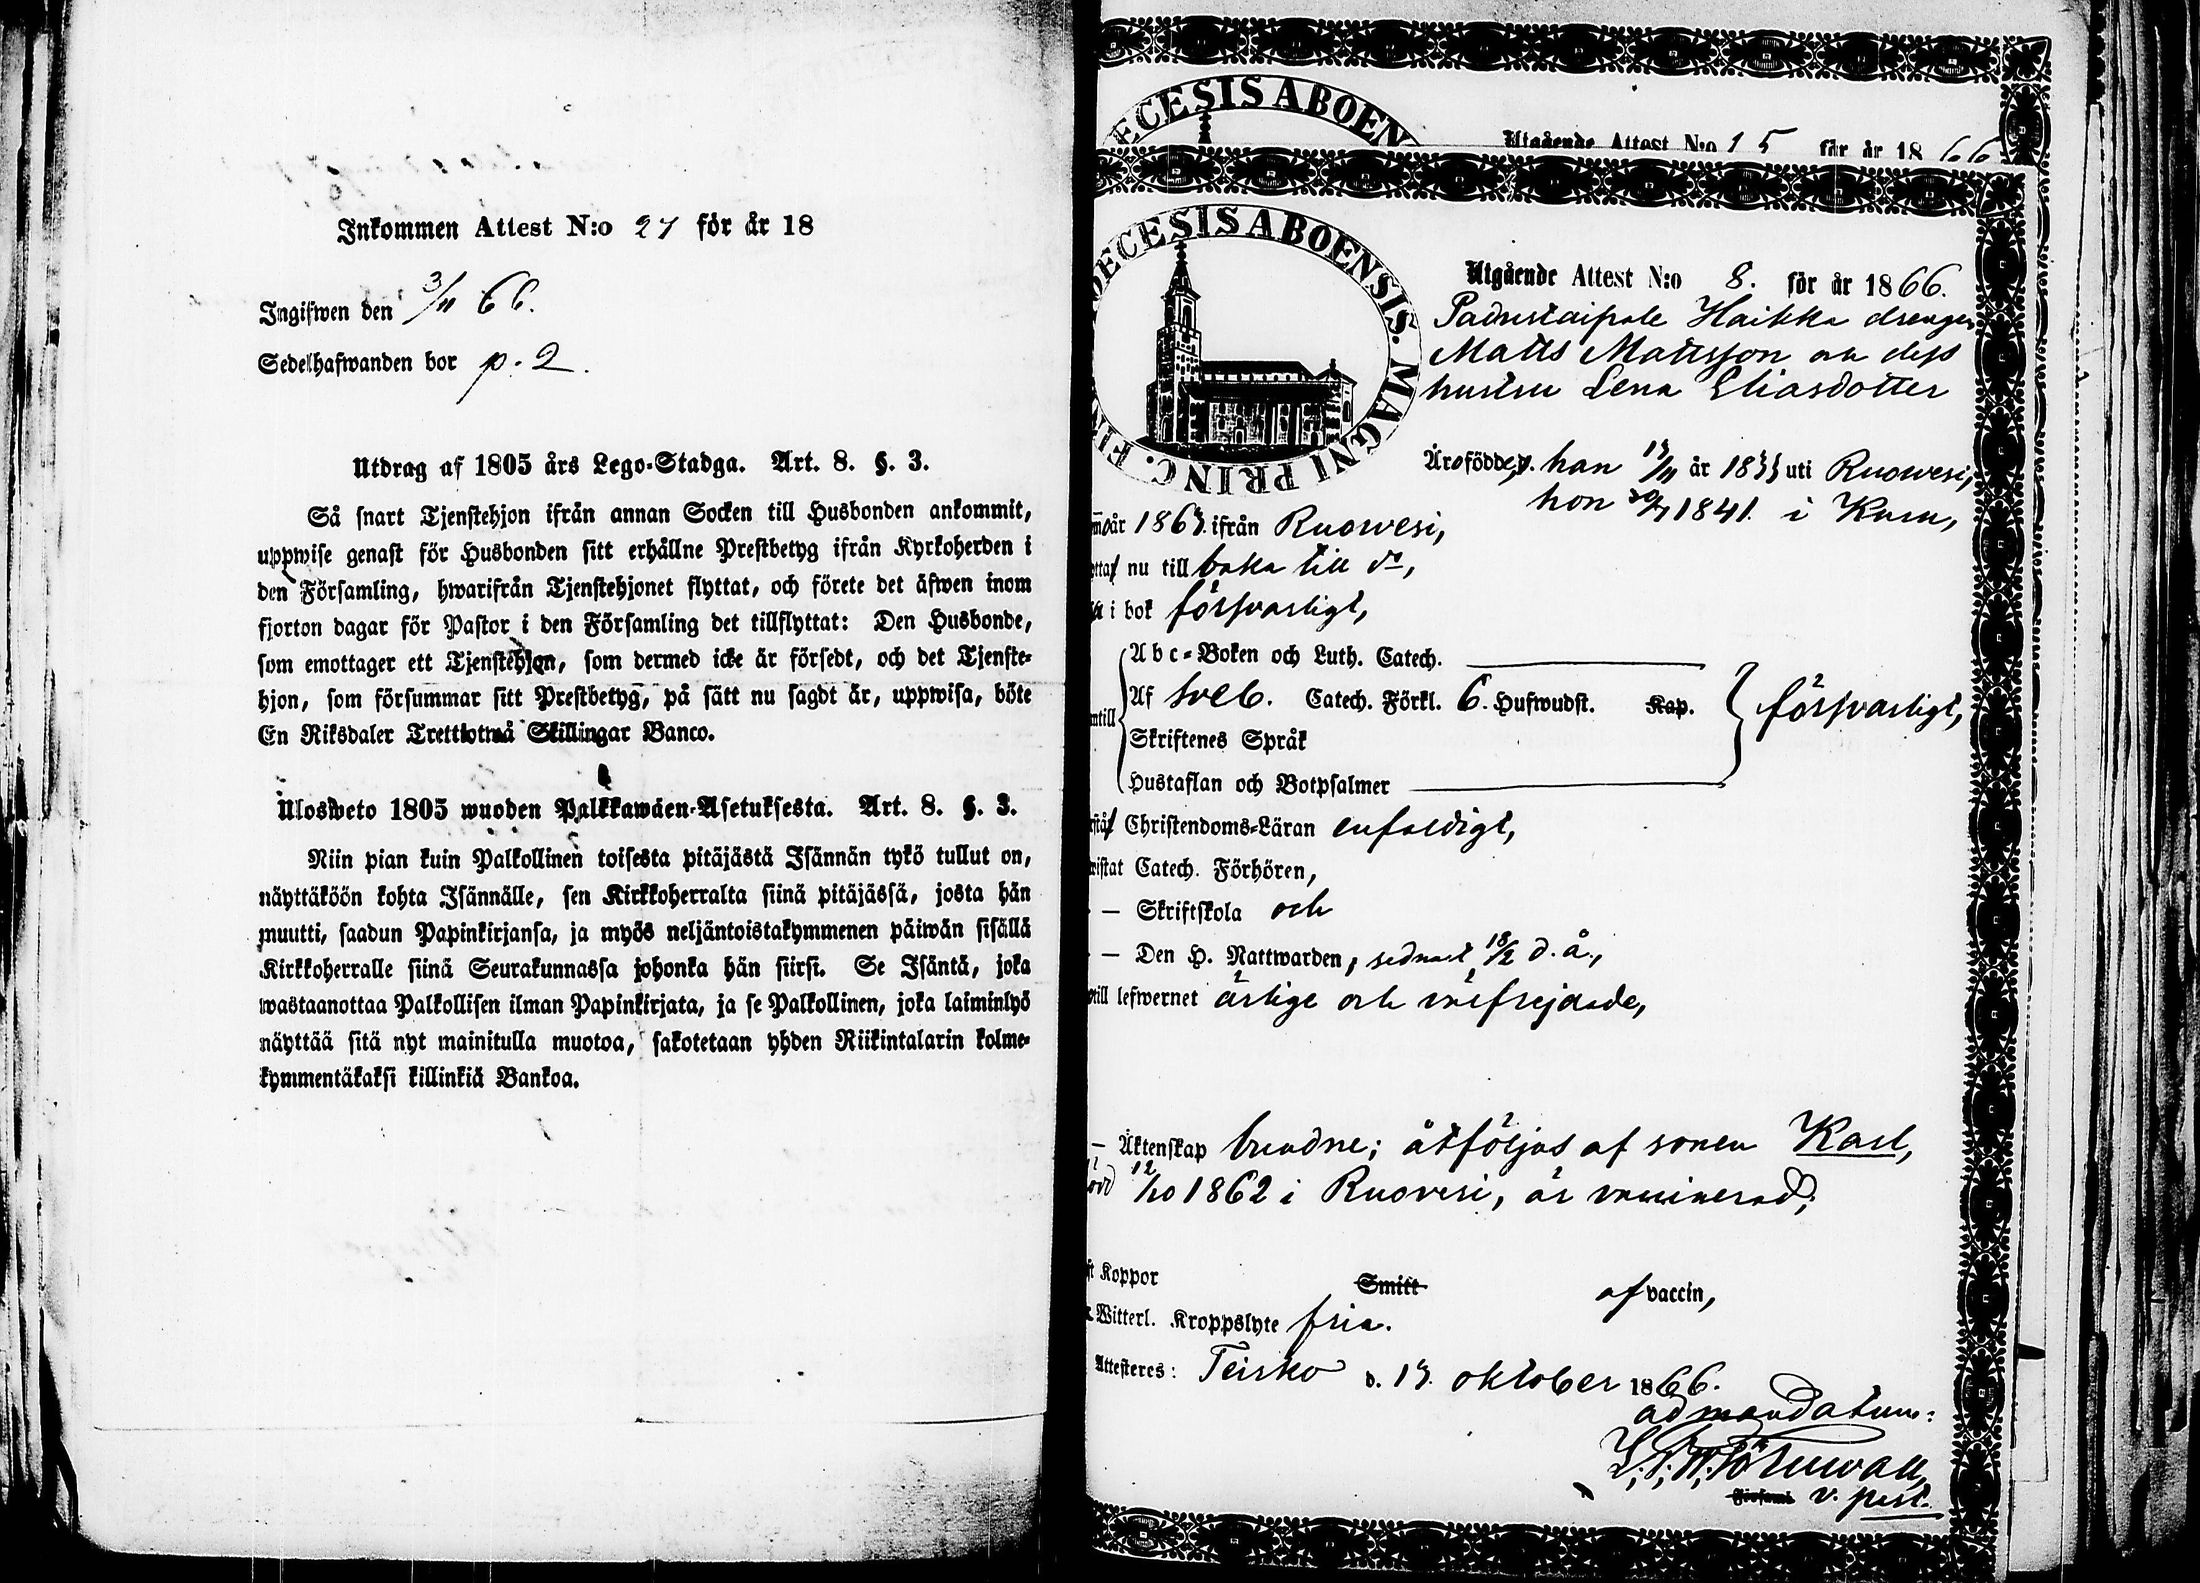 Inkommen Attest N:o 27 för år 18
Ingifwen den 3/11 66.
Sedelhafwanden bor p. 2.
Utdrag af 1805 års Lego-Stadga. Art. 8. §. 3.
Så snart Tjenstehjon ifrån annan Socken till Husbonden ankommit,
uppwise genast för Husbonden sitt erhållne Prestbetyg ifrån Kyrkoherden i
den Församling, hwarifrån Tjenstehjonet flyttat, och förete det äfwen inom
fjorton dagar för Pastor i den Församling det tillflyttat: Den Husbonde,
som emottager ett Tjenstehjon, som dermed icke är försedt, och det Tjenste-
hjon, som försummar sitt Prestbetyg, på sätt nu sagdt är, uppwisa, böte
En Riksdaler Trettiotwå Skillingar Banco.
Ulosweto 1805 wuoden Palkkawäen-Asetuksesta. Art. 8. §. 3.
Niin pian kuin Palkollinen toisesta pitäjästä Isännän tykö tullut on,
näyttäköön kohta Isännälle, sen Kirkkoherralta siinä pitäjässä, josta hän
muutti, saadun Papinkirjansa, ja myös neljäntoistakymmenen päiwän sisällä
Kirkkoherralle siinä Seurakunnassa johonka hän siirsi. Se Isäntä, joka
wastaanottaa Palkollisen ilman Papinkirjata, ja se Palkollinen, joka laiminlyö
näyttää sitä nyt mainitulla muotoa, sakotetaan yhden Riikintalarin kolme-
kymmentäkaksi killinkiä Bankoa.
ECESIS ABOEN
Utgående Attest N:o 15 för år 1866
DECESIS ABOENSIS. MAGNI PRINC. FI
Utgående Attest N:o 8. för år 1866.
Padustaipale Haikka drengen
Matts Mattsson och dess
hustru Lena Eliasdotter
Äro födde, han /11 år 18 uti Ruowesi,
hon 1841. i Kuru,
år 186 ifrån Ruowesi,
nu till baka till do,
i bok försvarligt,
Abc-Boken och Luth. Catech.
Af Sveb. Catech. Förkl. 6. Hufwudst. Kap. försvarligt,
Skriftenes Språk
Hustaflan och Botpsalmer
Christendoms-Läran enfaldigt,
Catech. Förhören,
— Skriftskola och
— Den H. Nattwarden, sednast 18/2 d. å.,
till lefwernet ärlige och väl frejdade,
— Äktenskap bundne; åtföljas af sonen Karl,
12/10 1862 i Ruovesi, är vaccinerad;
Koppor Smitt af vaccin,
Witterl. Kroppslyte fria.
Attesteres: Teisko d. 13. oktober 1866.
ad mandatum:
v. past.